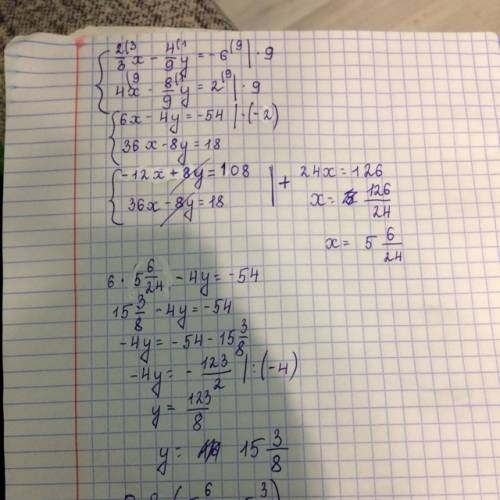 { 2/3(3 x - 4/9(1 y = -6(9 | · 9
4x(9 - 8/9(1 y = 2(9 | · 9
{ 6x - 4y = -54 | · (-2)
36x - 8y = 18
{ -12x + 8y = 108 | + 24x = 126
36x - 8y = 18 x = 126/24
x = 5 6/24
6 · 5 6/24 - 4y = -54
15 3/8 - 4y = -54
-4y = -54 - 15 3/8
-4y = - 123/2 | : (-4)
y = 123/8
y = 15 3/8